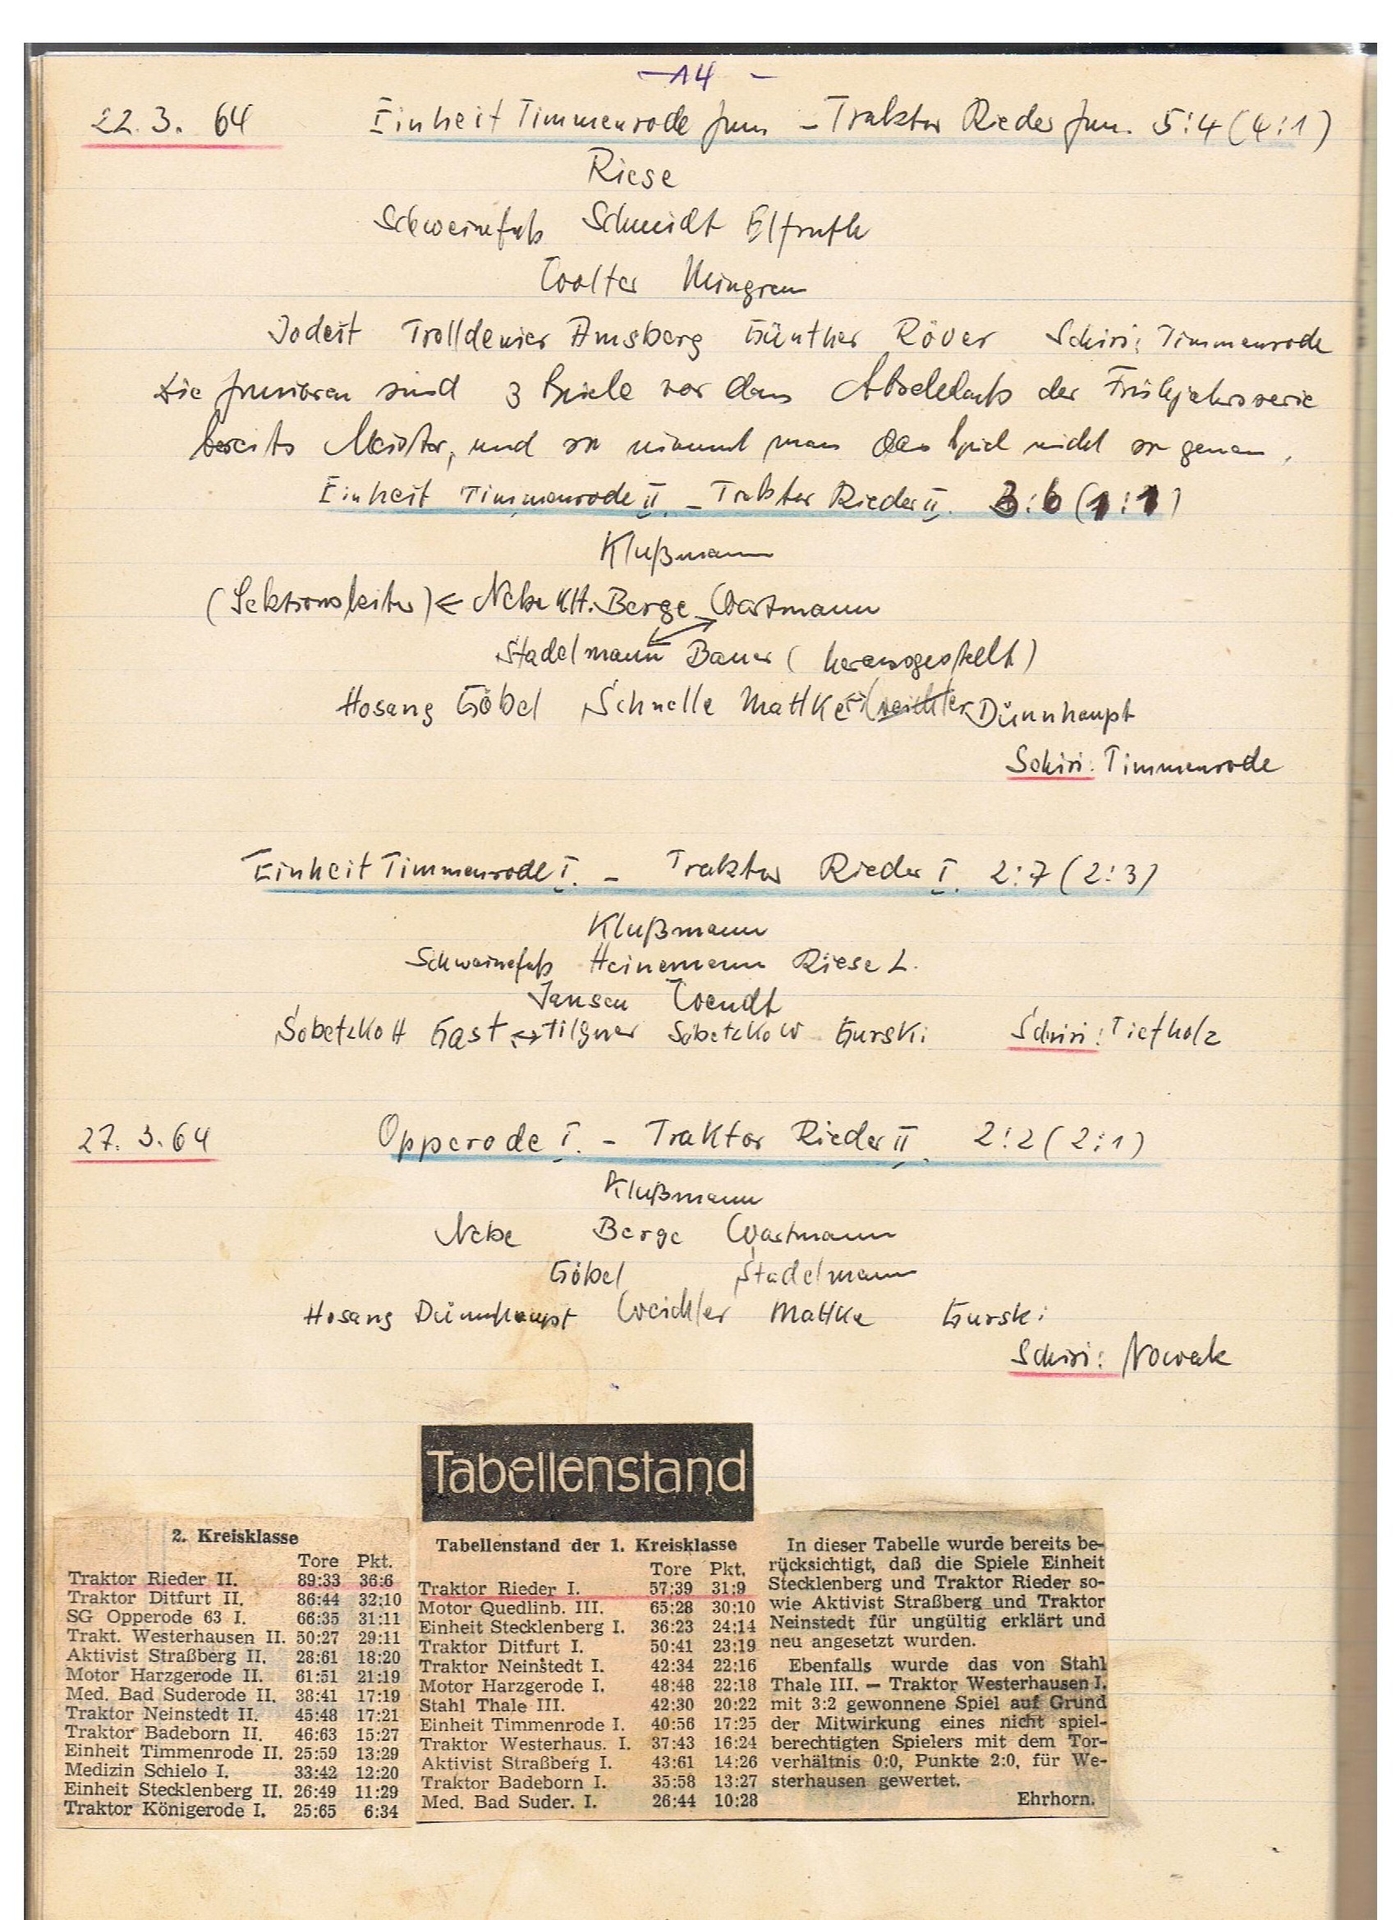 -14-
22.3.64 Einheit Timmenrode Jun - Traktor Rieder Jun. 5:4 (4:1)
Riese
Schweinefuß Schmidt Elfruth
Wolter Mingram
Jodeit Trolldenier Amsberg Günther Röver Schiri: Timmenrode
Die Junioren sind 3 Spiele vor dem Abschluß der Frühjahrsserie
bereits Meister, und so nimmt man das Spiel nicht so genau.
Einheit Timmenrode II. - Traktor Rieder II. 3:6 (1:1)
Klußmann
(Sektionsleiter) ← Nebe KH. Berge Wartmann
Stadelmann Bauer (herausgestellt)
Hosang Göbel Schnelle Mattke Dünnhaupt
Schiri: Timmenrode
Einheit Timmenrode I. - Traktor Rieder I. 2:7 (2:3)
Klußmann
Schweinefuß Heinemann Riese L.
Jansen Wendt
Sobetzko H Gast ↔ Tilgner Sobetzko W Gurski Schiri: Tiefholz
27.3.64 Opperode I. - Traktor Rieder II. 2:2 (2:1)
Klußmann
Nebe Berge Wartmann
Göbel Stadelmann
Hosang Dünnhaupt Weichler Mattke Gurski
Schiri: Nowak
Tabellenstand
2. Kreisklasse
Tore Pkt.
Traktor Rieder II. 89:33 36:6
Traktor Ditfurt II. 86:44 32:10
SG Opperode 63 I. 66:35 31:11
Trakt. Westerhausen II. 50:27 29:11
Aktivist Straßberg II. 28:61 18:20
Motor Harzgerode II. 61:51 21:19
Med. Bad Suderode II. 38:41 17:19
Traktor Neinstedt II. 45:48 17:21
Traktor Badeborn II. 46:63 15:27
Einheit Timmenrode II. 25:59 13:29
Medizin Schielo I. 33:42 12:20
Einheit Stecklenberg II. 26:49 11:29
Traktor Königerode I. 25:65 6:34
Tabellenstand der 1. Kreisklasse
Tore Pkt.
Traktor Rieder I. 57:39 31:9
Motor Quedlinb. III. 65:28 30:10
Einheit Stecklenberg I. 36:23 24:14
Traktor Ditfurt I. 50:41 23:19
Traktor Neinstedt I. 42:34 22:16
Motor Harzgerode I. 48:48 22:18
Stahl Thale III. 42:30 20:22
Einheit Timmenrode I. 40:56 17:25
Traktor Westerhaus. I. 37:43 16:24
Aktivist Straßberg I. 43:61 14:26
Traktor Badeborn I. 35:58 13:27
Med. Bad Suder. I. 26:44 10:28
In dieser Tabelle wurde bereits be-
rücksichtigt, daß die Spiele Einheit
Stecklenberg und Traktor Rieder so-
wie Aktivist Straßberg und Traktor
Neinstedt für ungültig erklärt und
neu angesetzt wurden.
Ebenfalls wurde das von Stahl
Thale III. — Traktor Westerhausen I.
mit 3:2 gewonnene Spiel auf Grund
der Mitwirkung eines nicht spiel-
berechtigten Spielers mit dem Tor-
verhältnis 0:0, Punkte 2:0, für We-
sterhausen gewertet.
Ehrhorn.